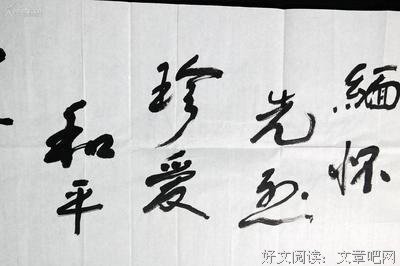 緬怀
先烈
珍爱
和平
好文阅读：文章吧网